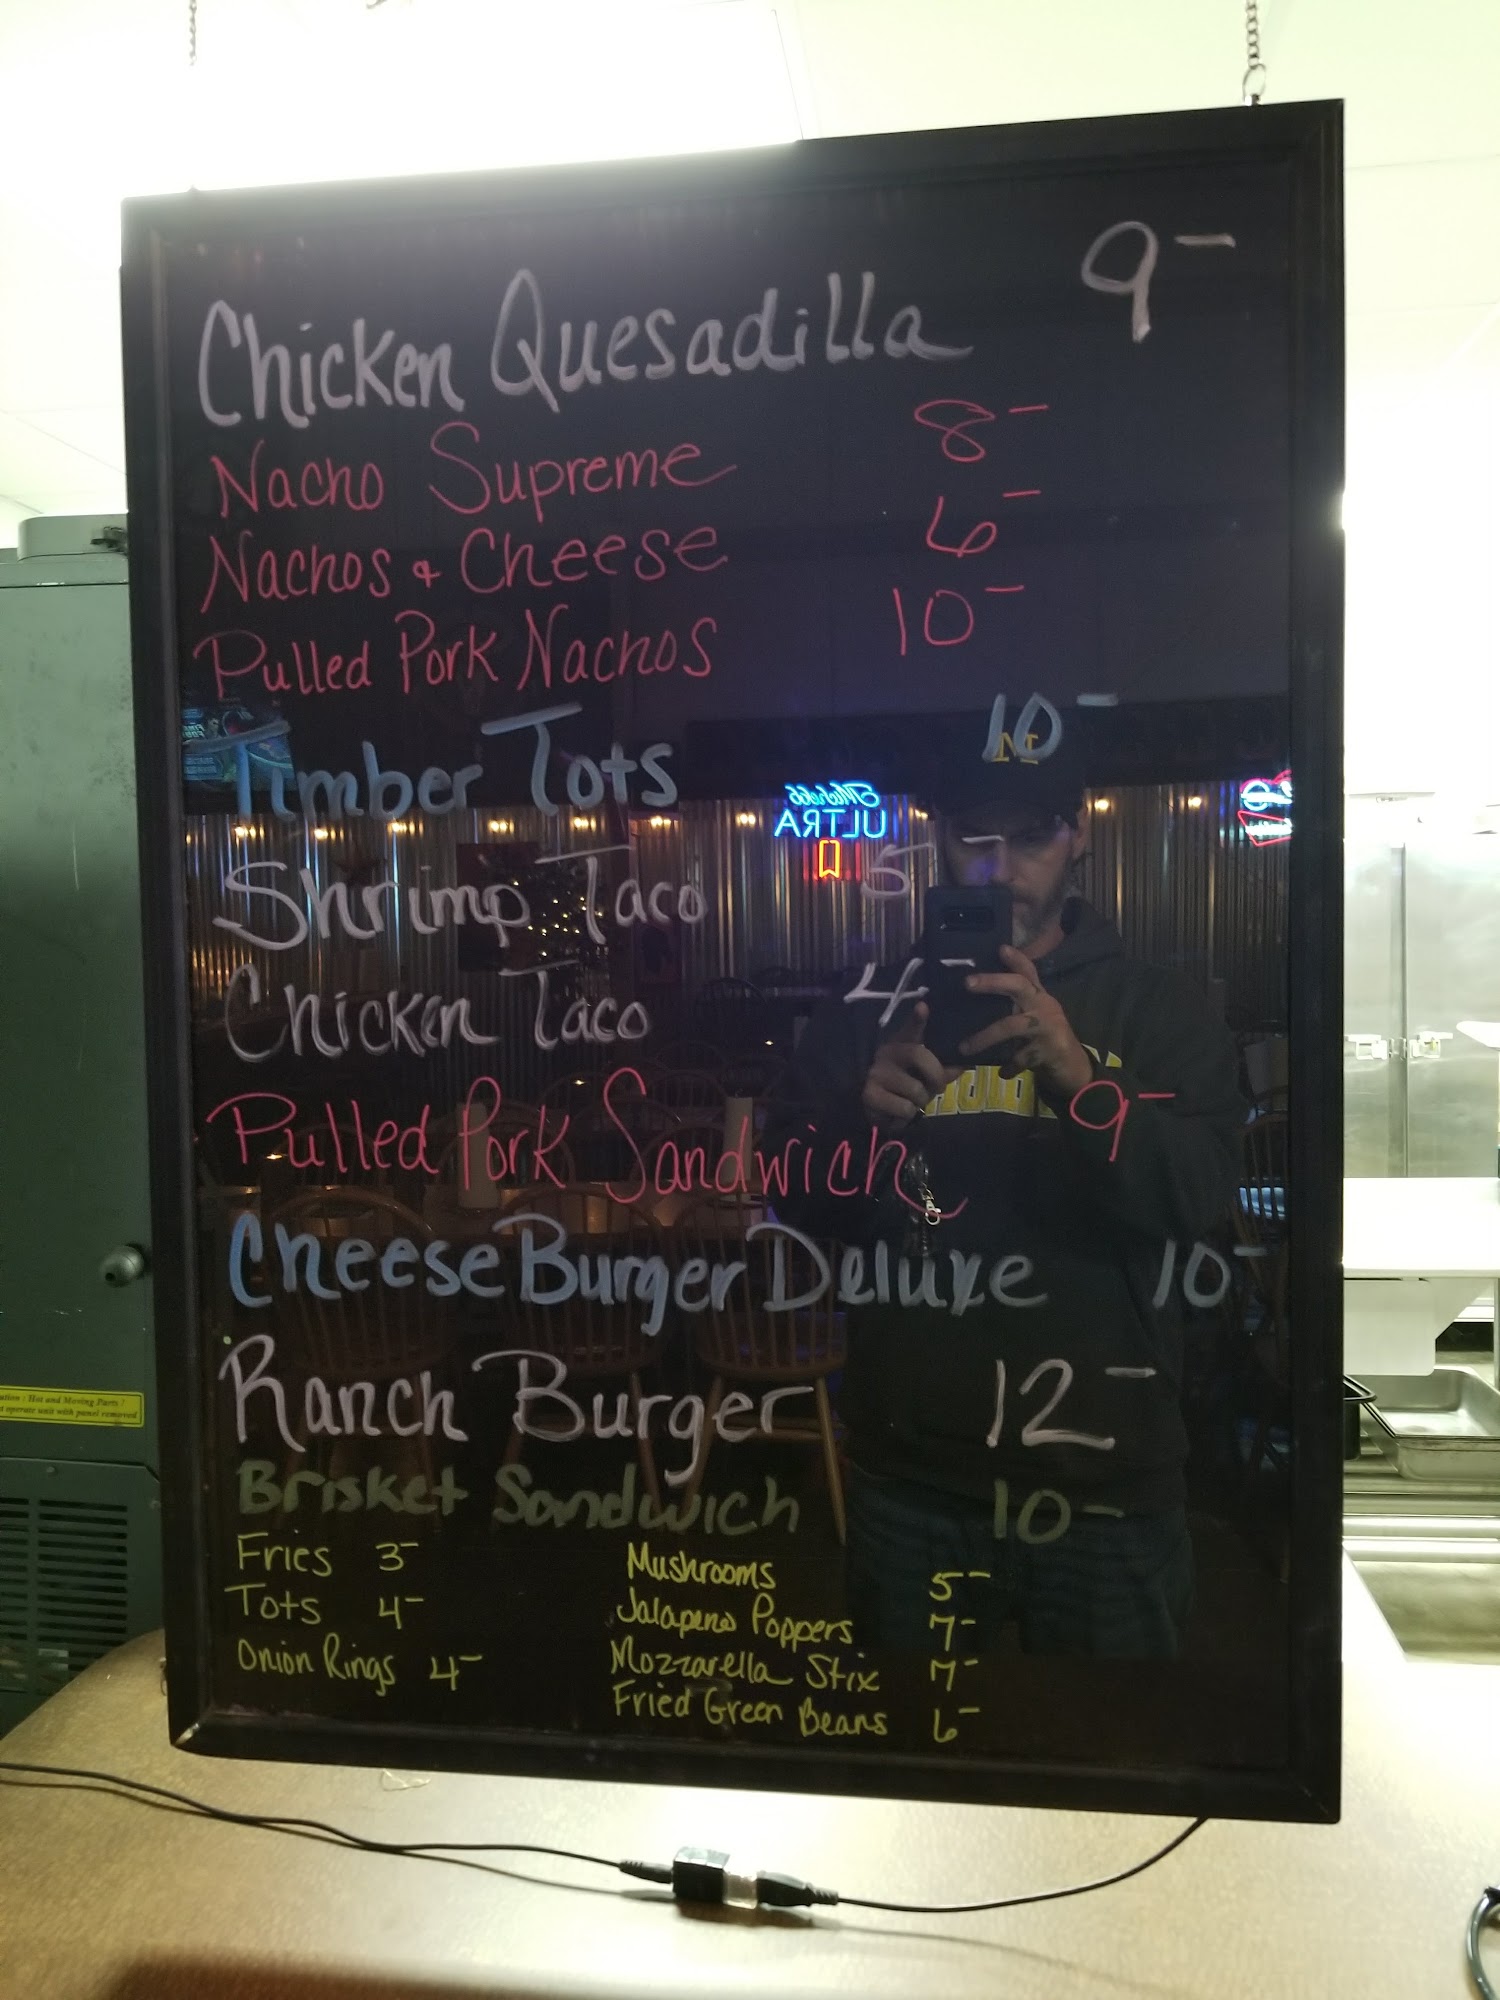 Chicken Quesadilla 9-
Nacho Supreme 8-
Nachos & Cheese 6-
Pulled Pork Nachos 10-
Timber Tots 10-
Shrimp Taco 5-
Chicken Taco 4-
Pulled Pork Sandwich 9-
CheeseBurger Deluxe 10-
Ranch Burger 12-
Brisket Sandwich 10-
Fries 3-
Tots 4-
Onion Rings 4-
Mushrooms 5-
Jalapeno Poppers 7-
Mozzarella Stix 7-
Fried Green Beans 6-
Michelob
ULTRA
Caution : Hot and Moving Parts !
operate unit with panel removed